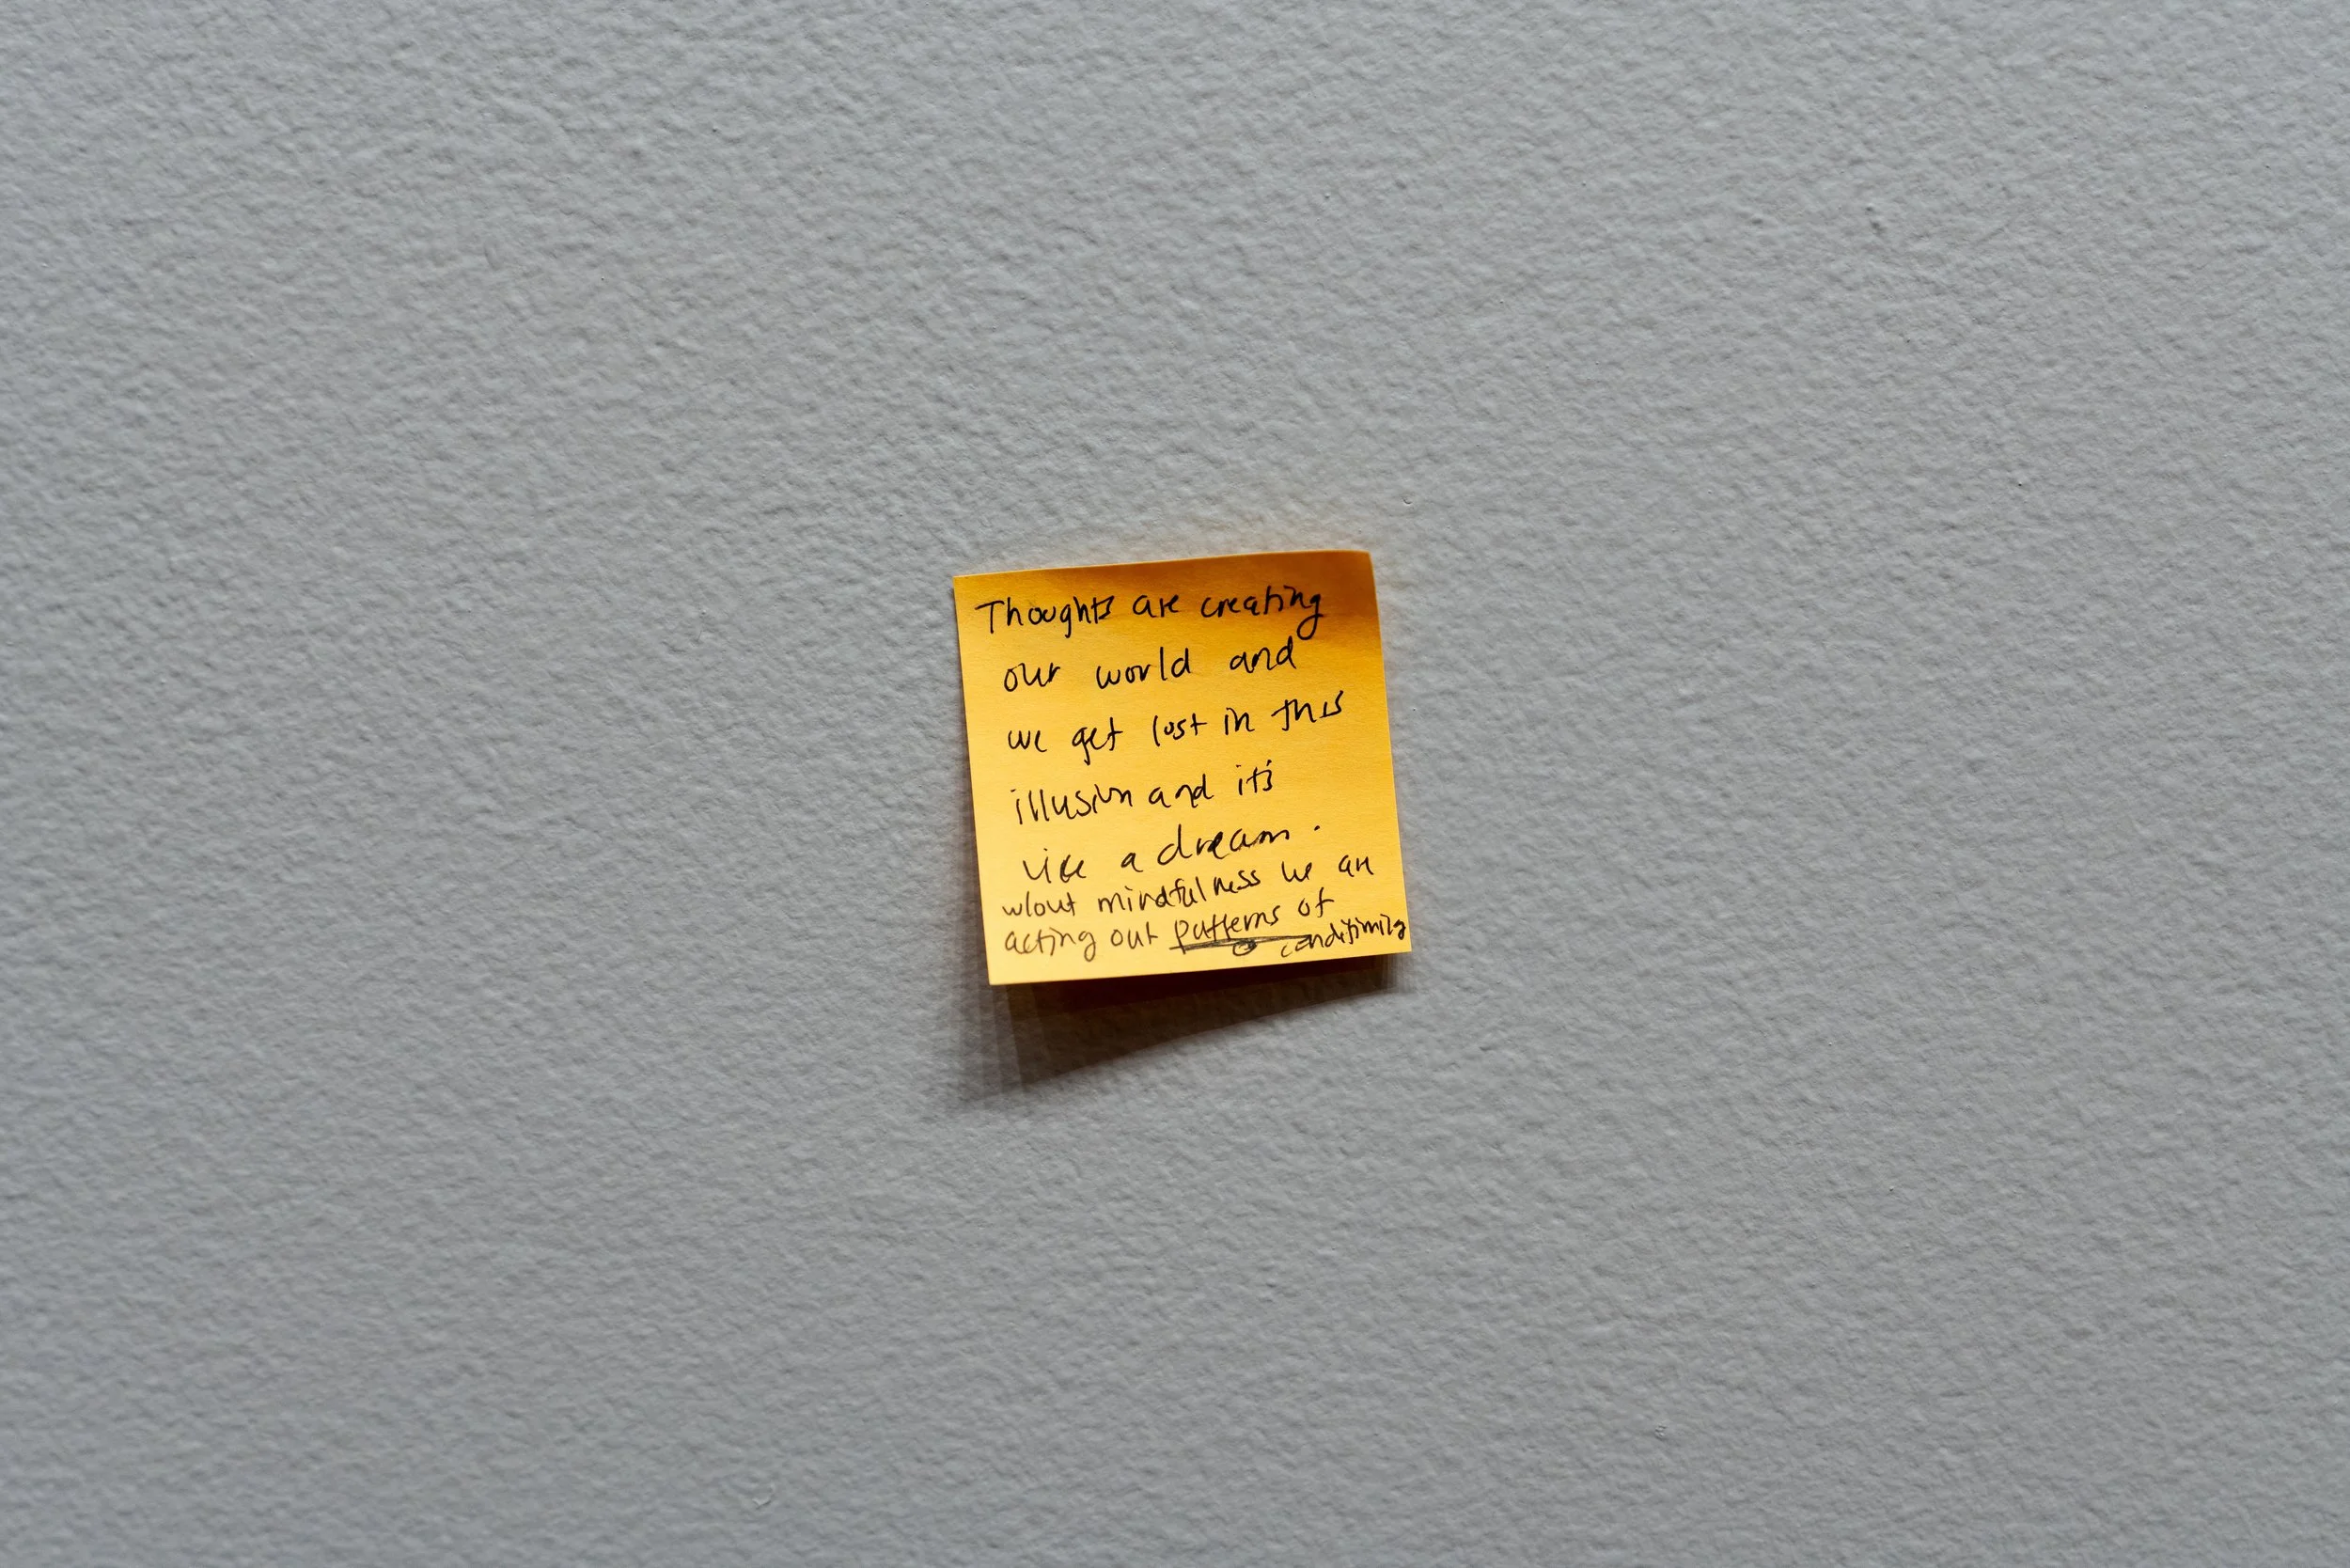 Thoughts are creating
our world and
we get lost in this
illusion and it's
like a dream.
w/out mindfulness we are
acting out patterns of
conditioning